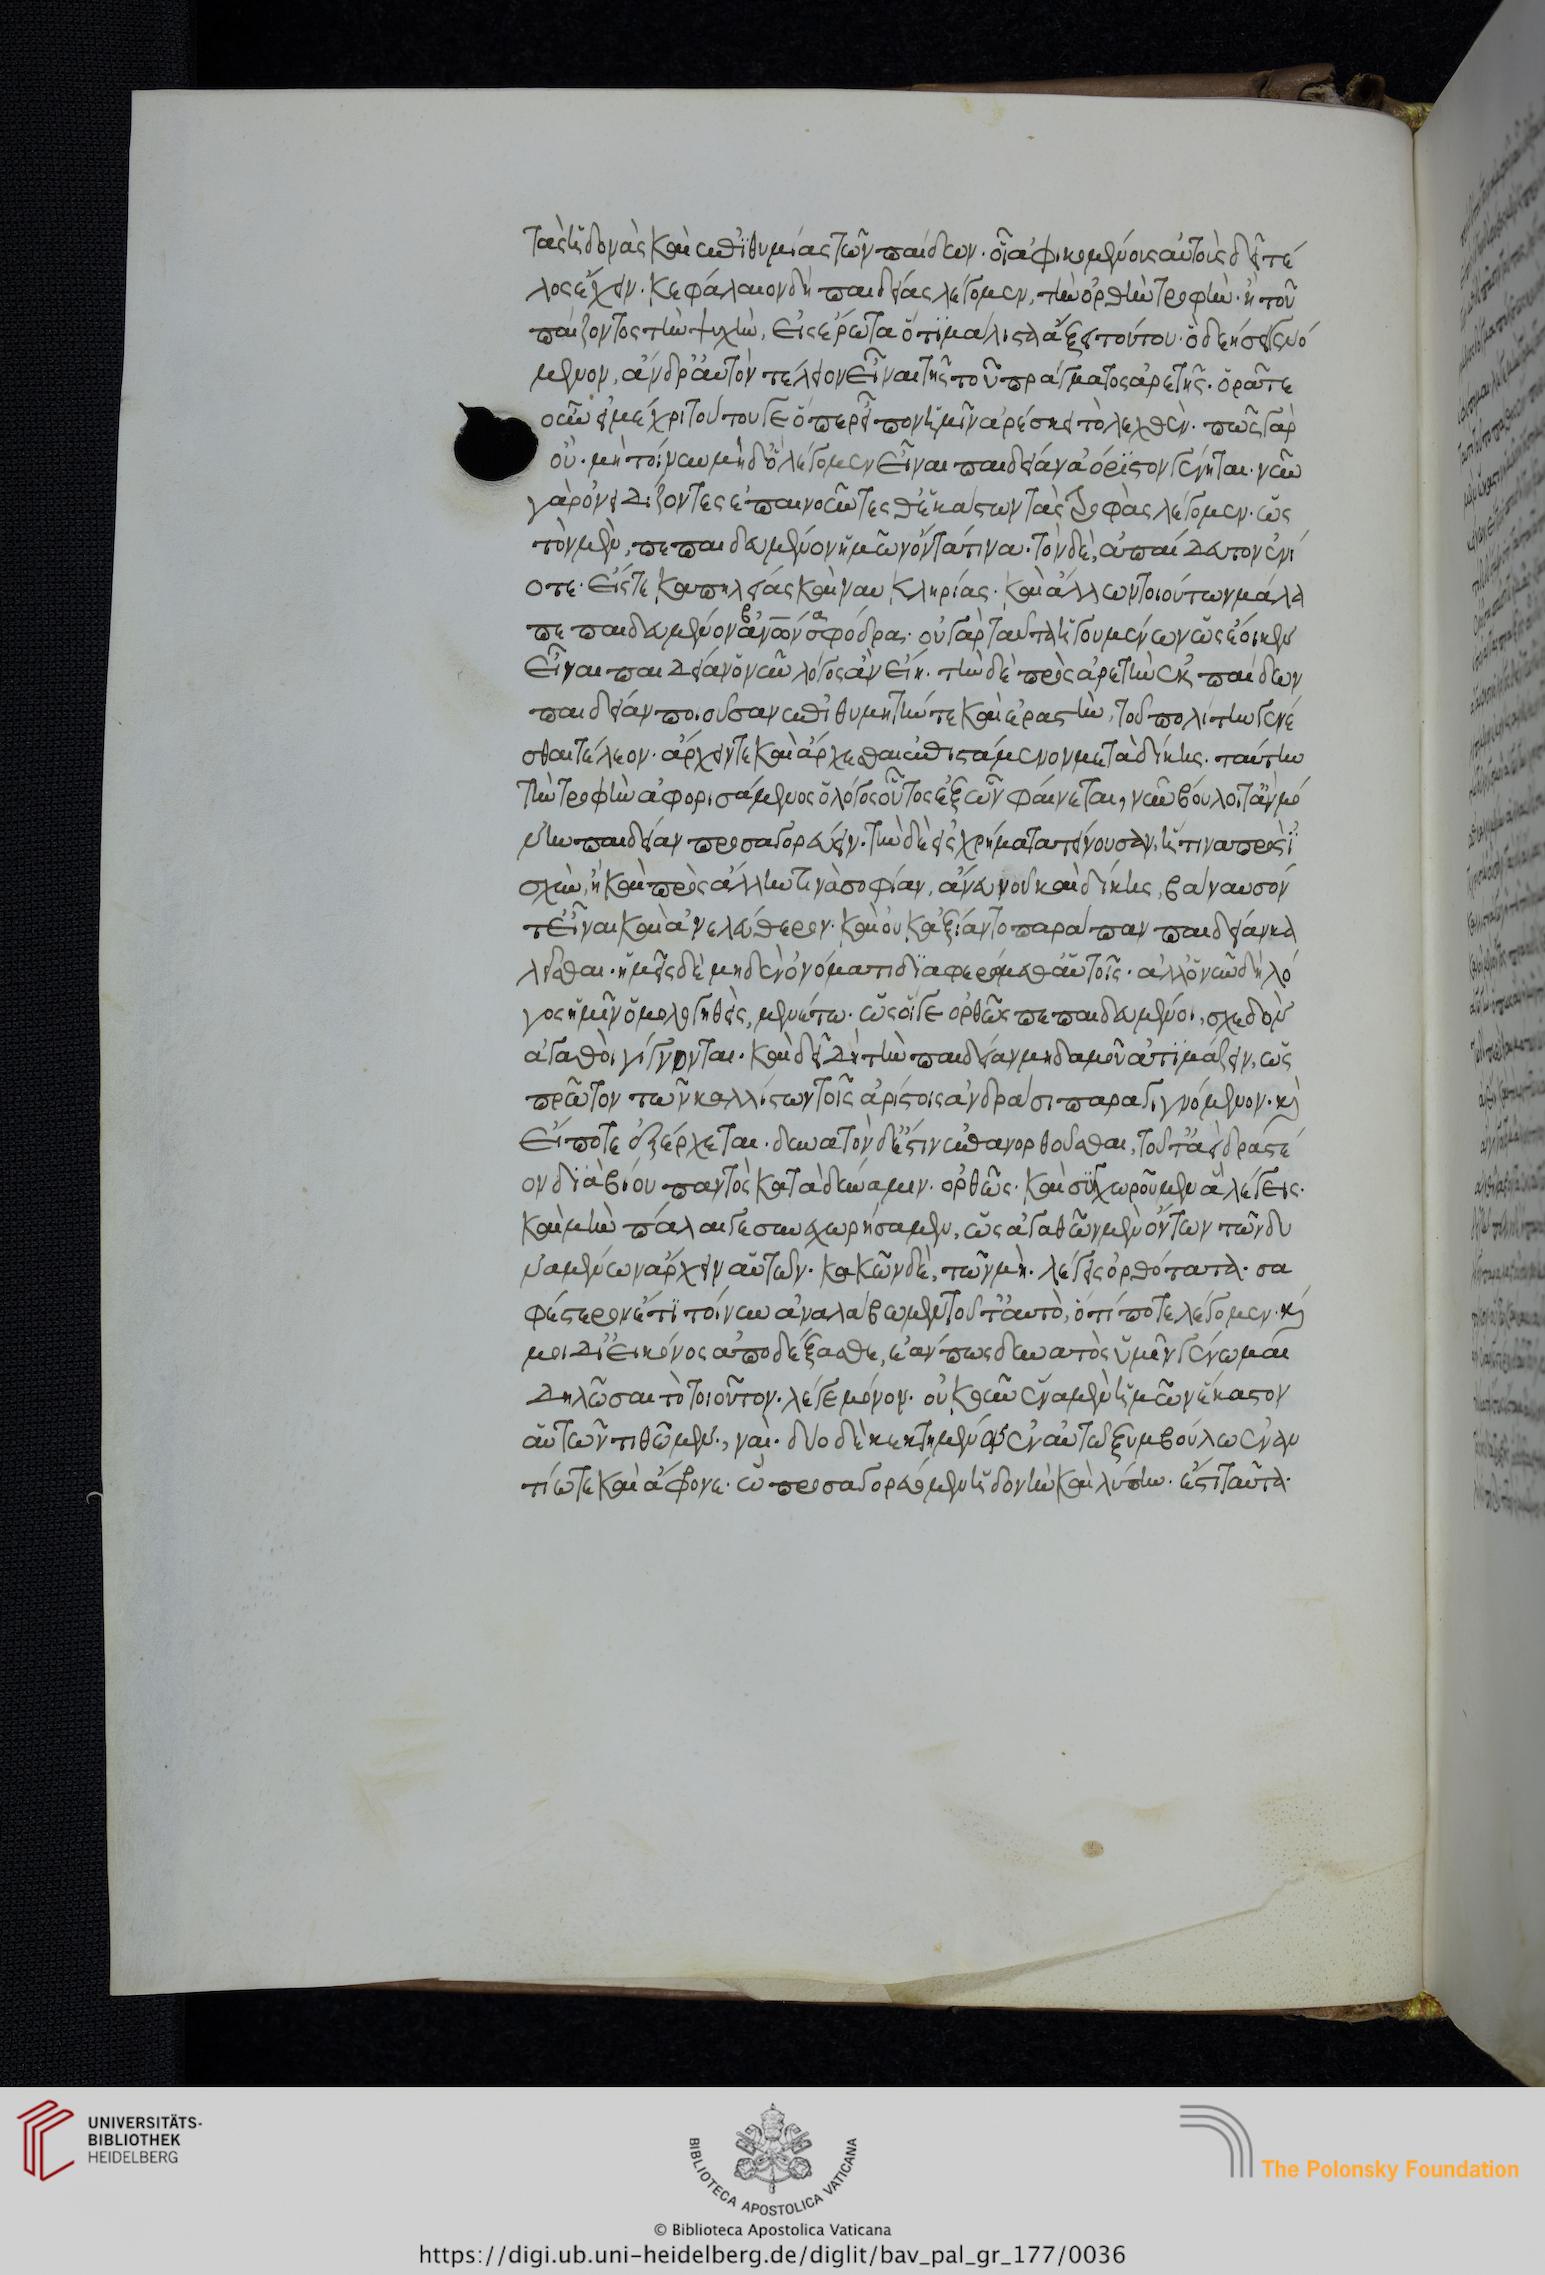 τὰς ἡδονὰς καὶ ἐπιθυμίας τῶν παίδων· οἷ ἀφικομένους αὐτοὺς δεῖ τέ
λος ἔχειν. κεφάλαιον δὴ παιδείας λέγομεν, τὴν ὀρθὴν τροφὴν· ἣ τοῦ
παίζοντος τὴν ψυχὴν, εἰς ἔρωτα ὅτι μάλιστα ἄξει τούτου· ὃ δεήσει γενό
μενον, ἄνδρ' αὐτὸν τέλειον εἶναι τῆς τοῦ πράγματος ἀρετῆς. ὁρᾶτε
οὖν εἰ μέχρι τούτου γε ὅπερ εἶπον ἡμῖν ἀρέσκει τὸ λεχθέν. πῶς γὰρ
οὔ· μὴ τοίνυν μηδ' ὃ λέγομεν εἶναι παιδείαν ἀόριστον γένηται. νῦν
γὰρ ὀνειδίζοντες ἐπαινοῦντές θ' ἑκάστων τὰς τροφὰς λέγομεν· ὡς
τὸν μὲν, πεπαιδευμένον ἡμῶν ὄντα τινα· τὸν δὲ, ἀπαίδευτον ἐνί
οτε· εἴς τε καπηλείας καὶ ναυκληρίας· καὶ ἄλλων τοιούτων μάλα
πεπαιδευμένον ἀνῶν σφόδρα· οὐ γὰρ ταῦτα ἡγουμένων ὡς ἔοικεν
εἶναι παιδείαν ὁ νῦν λόγος ἂν εἴη. τὴν δὲ πρὸς ἀρετὴν ἐκ παίδων
παιδείαν ποιοῦσαν ἐπιθυμητήν τε καὶ ἐραστὴν, τοῦ πολίτην γενέ
σθαι τέλεον· ἄρχειν τε καὶ ἄρχεσθαι ἐπιστάμενον μετὰ δίκης. ταύτην
τὴν τροφὴν ἀφορισάμενος ὁ λόγος οὗτος ἐξ ὧν φαίνεται, νῦν βούλοιτ' ἂν μό
νην παιδείαν προσαγορεύειν. τὴν δὲ εἰς χρήματα τείνουσαν, ἤ τινα πρὸς ἰ
σχὺν, ἢ καὶ πρὸς ἄλλην τινὰ σοφίαν, ἄνευ νοῦ καὶ δίκης, βάναυσόν
τ' εἶναι καὶ ἀνελεύθερον· καὶ οὐκ ἀξίαν τοπαράπαν παιδείαν κα
λεῖσθαι. ἡμεῖς δὲ μηδὲν ὀνόματι διαφερώμεθ' αὐτοῖς. ἀλλ' ὁ νῦν δὴ λό
γος ἡμῖν ὁμολογηθεὶς, μενέτω· ὡς οἵ γε ὀρθῶς πεπαιδευμένοι, σχεδὸν
ἀγαθοὶ γίγνονται. καὶ δεῖ δὴ τὴν παιδείαν μηδαμοῦ ἀτιμάζειν, ὡς
πρῶτον τῶν καλλίστων τοῖς ἀρίστοις ἀνδράσι παραγιγνόμενον. κὶ
εἴ ποτε ἐξέρχεται. δυνατὸν δ' ἔστιν ἐπανορθοῦσθαι, τοῦτ' ἀεὶ δραστέ
ον διὰ βίου παντὸς κατὰ δύναμιν. ὀρθῶς· καὶ συγχωροῦμεν ἃ λέγεις.
καὶ μὴν πάλαι γε συνεχωρήσαμεν, ὡς ἀγαθῶν μὲν ὄντων τῶν δυ
ναμένων ἄρχειν αὑτῶν. κακῶν δὲ, τῶν μή. λέγεις ὀρθότατα. σα
φέστερον ἔτι τοίνυν ἀναλάβωμεν τοῦτ' αὐτὸ, ὅτί ποτε λέγομεν. κὶ
μοι δι' εἰκόνος ἀποδέξασθε, ἐάν πως δυνατὸς ὑμῖν γένωμαι
δηλῶσαι τὸ τοιοῦτον. λέγε μόνον. οὐκοῦν ἕνα μὲν ἡμῶν ἕκαστον
αὐτῶν τιθῶμεν., ναί. δύο δὲ κεκτημένον ἐν αὑτῷ ξυμβούλω ἐναν
τίω τε καὶ ἄφρονε. ὣ προσαγορεύομεν ἡδονὴν καὶ λύπην. ἔστι ταῦτα.
UNIVERSITÄTS-
BIBLIOTHEK
HEIDELBERG
BIBLIOTECA APOSTOLICA VATICANA
© Biblioteca Apostolica Vaticana
The Polonsky Foundation
https://digi.ub.uni-heidelberg.de/diglit/bav_pal_gr_177/0036